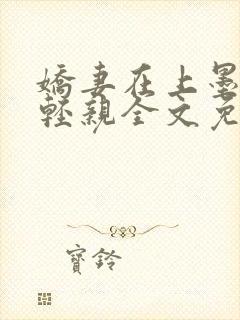 嬌妻在上墨
輕親全文免
寶鈴